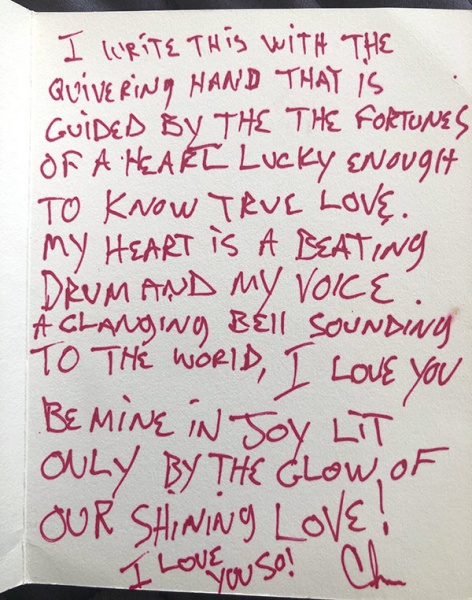 I WRITE THIS WITH THE
QUIVERING HAND THAT IS
GUIDED BY THE THE FORTUNES
OF A HEART LUCKY ENOUGH
TO KNOW TRUE LOVE.
MY HEART IS A BEATING
DRUM AND MY VOICE.
A CLANGING BEll SOUNDING
TO THE WORLD, I LOVE YOU
BE MINE IN JOY LIT
ONLY BY THE GLOW OF
OUR SHINING LOVE!
I LOVE YOU SO!